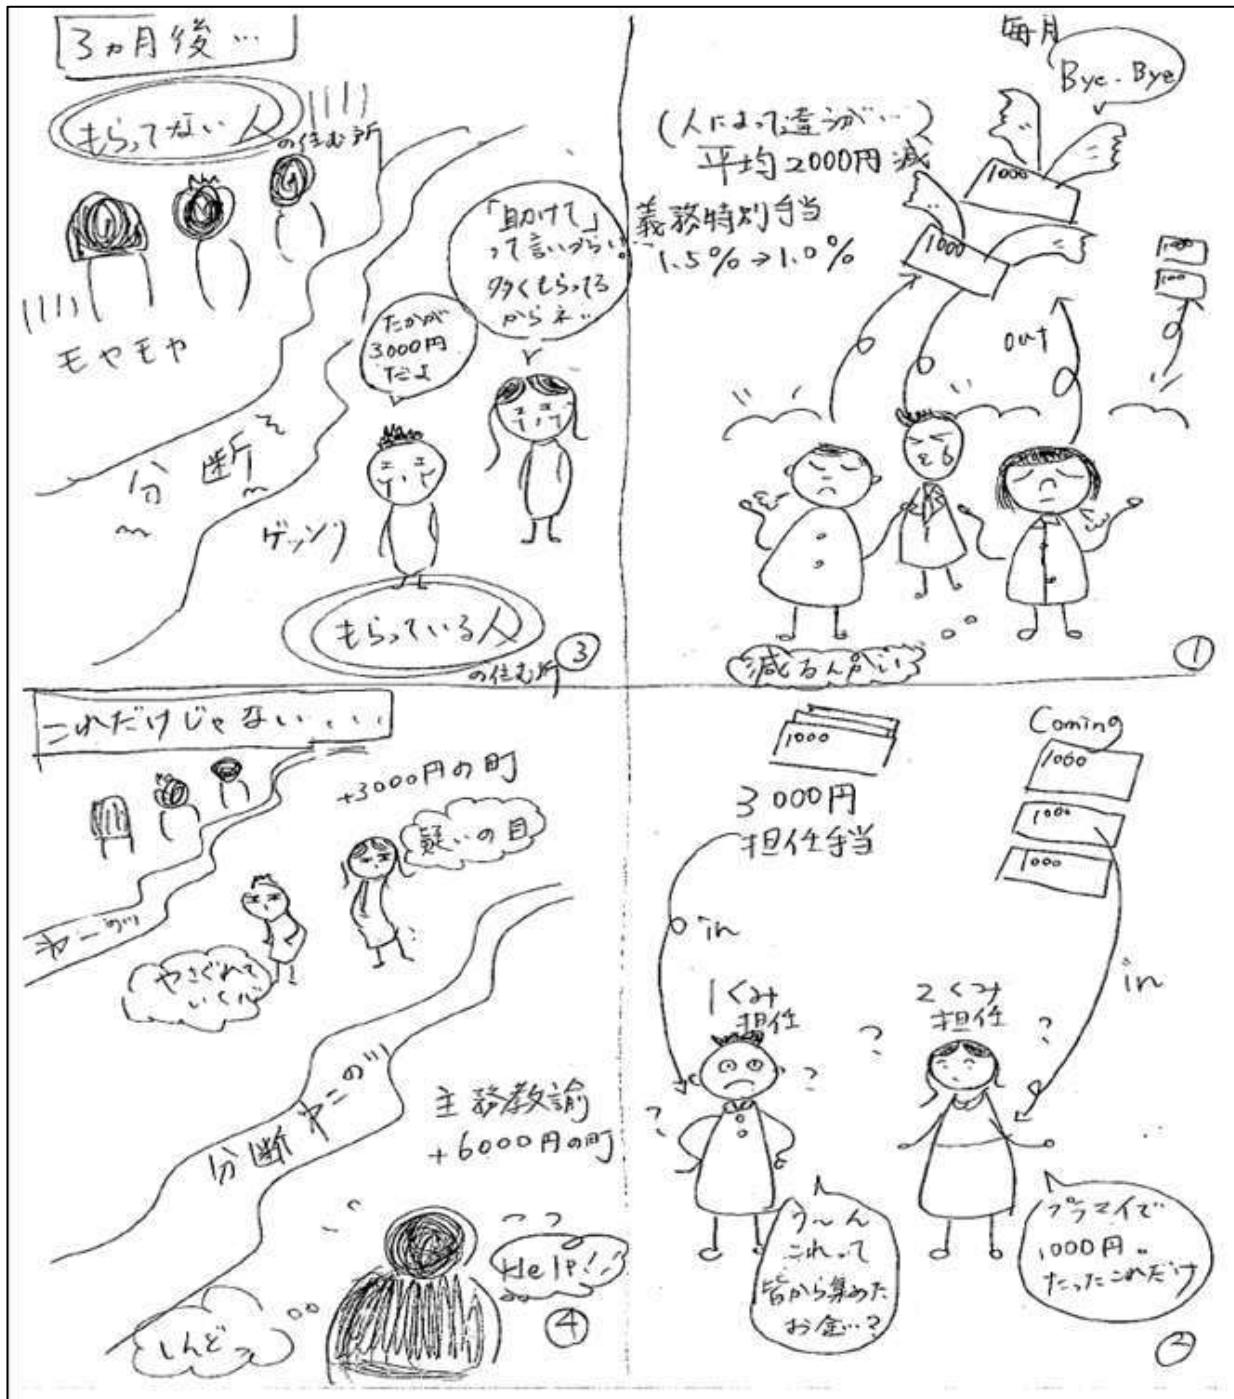 毎月
Bye-Bye
(人によって違うが…)
平均2000円減
義務特別手当
1.5%→1.0%
1000
1000
1000
100
out
減るんかい
①
1000
3000円
担任手当
Coming
1000
1000
1000
in
in
1くみ
担任
2くみ
担任
う〜ん
これって
皆から集めた
お金…?
プラマイで
1000円。
たったこれだけ
②
3ヵ月後…
もらってない人
の住む所
モヤモヤ
分断
「助けて」
って言いづらい。
多くもらってる
からネ..
たかが
3000円
だよ
ゲッソリ
もらっている人
の住む所
③
これだけじゃない...
+3000円の町
疑いの目
やさぐれて
いく心
分断その
主務教諭
+6000円の町
Help!!
しんどっ
④